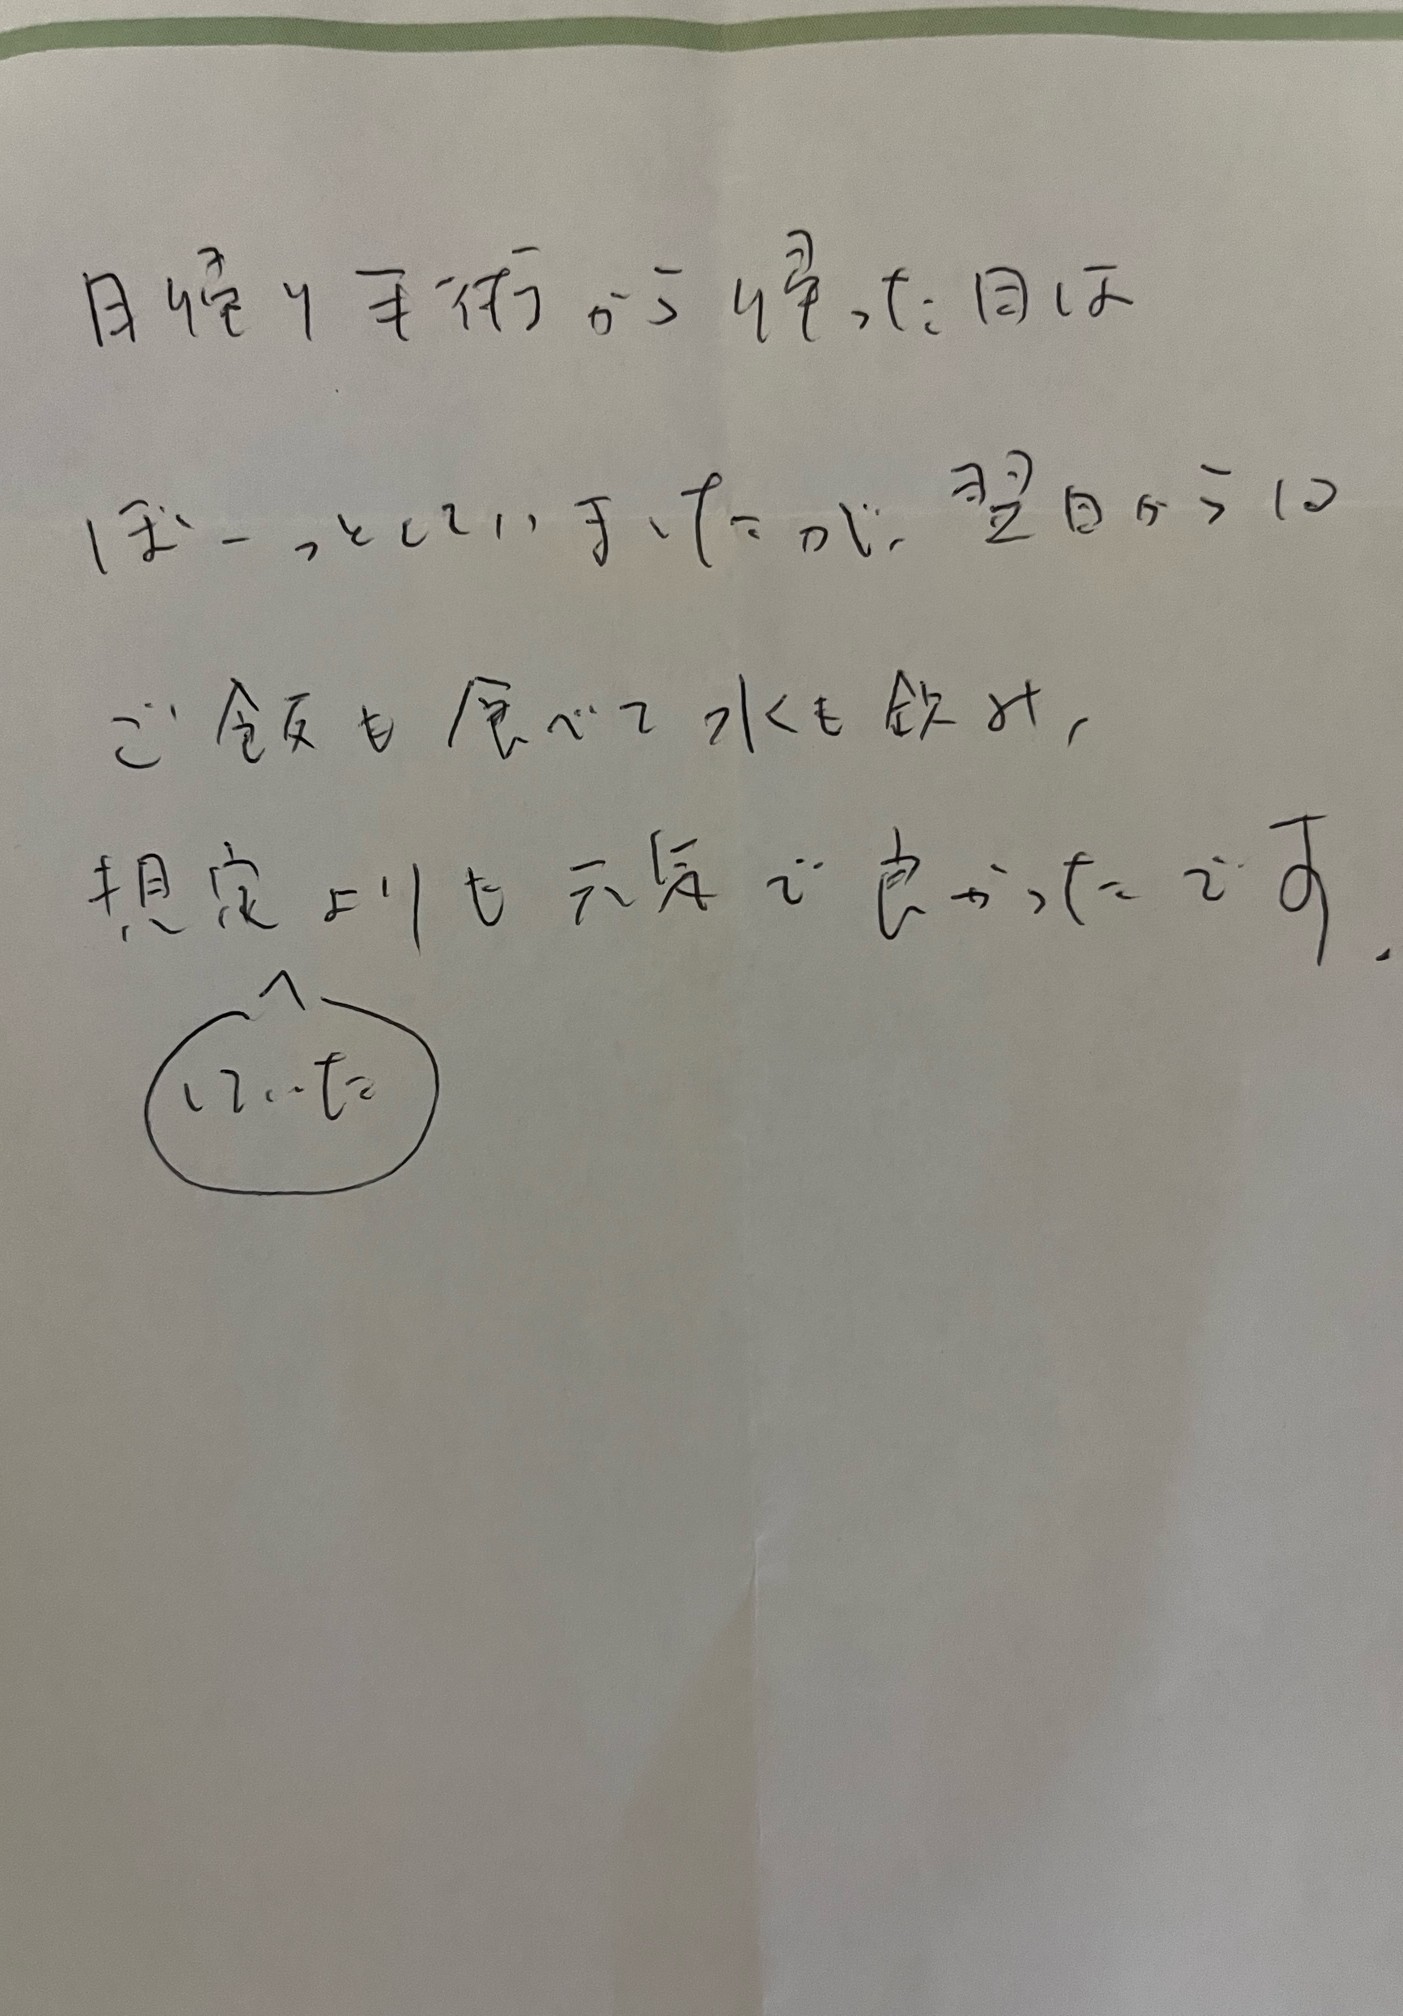 日帰り手術から帰った日は
ぼーっとしていましたが、翌日からは
ご飯も食べて水も飲み、
想定よりも元気で良かったです.
していた